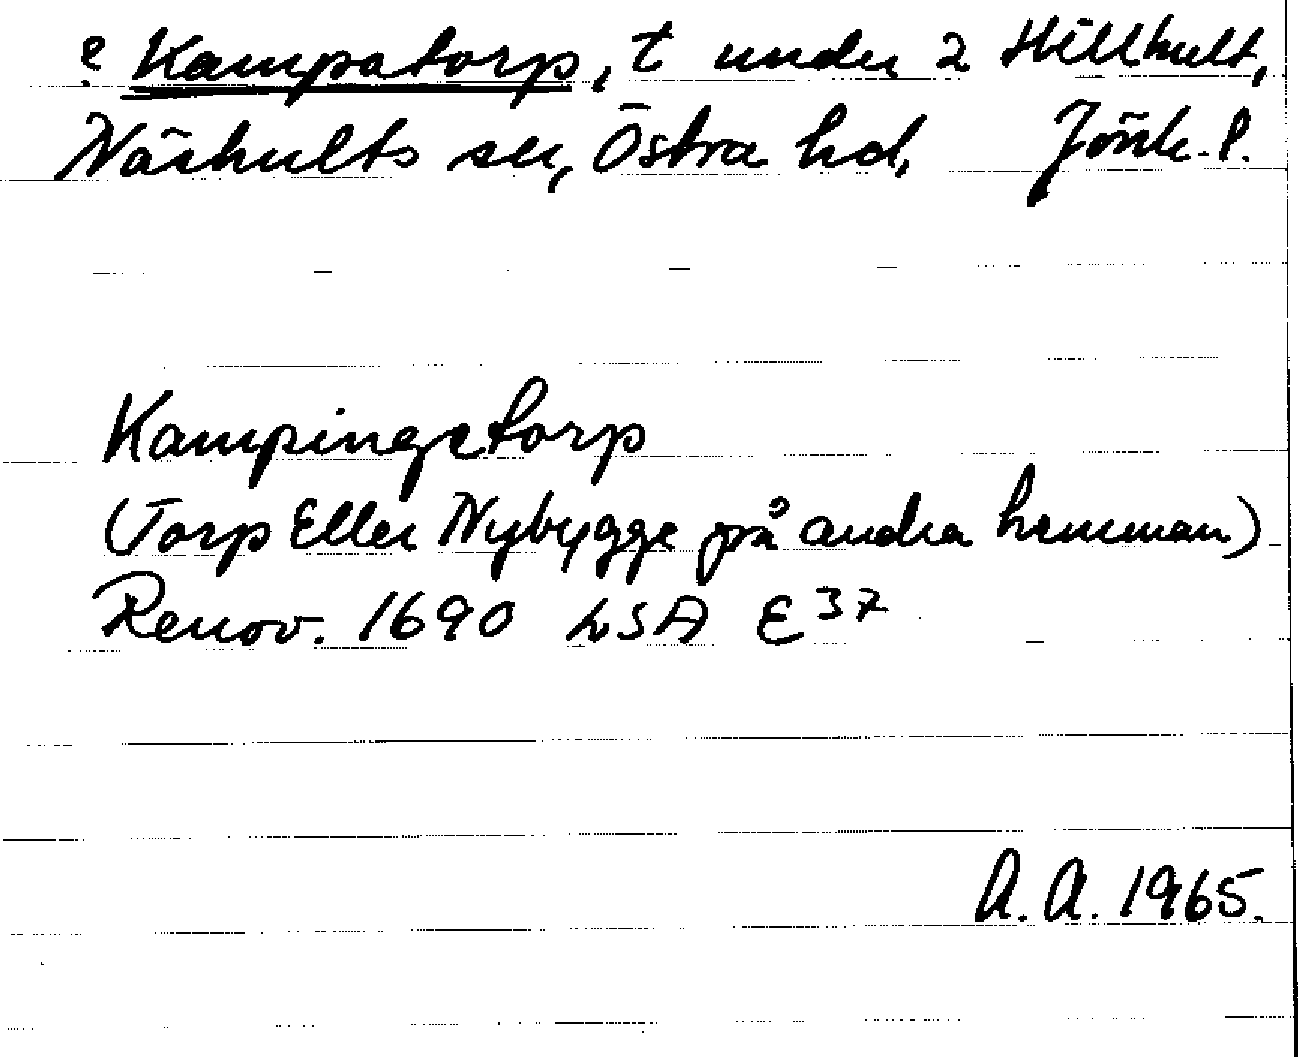 ? Kampatorp, t under 2 Hillhult,
Näshults sn, Östra hd, Jönk. l.
Kampingetorp
(Torp Eller Nybygge på andra hemman)
Renov. 1690 LSA E37
A. A. 1965.